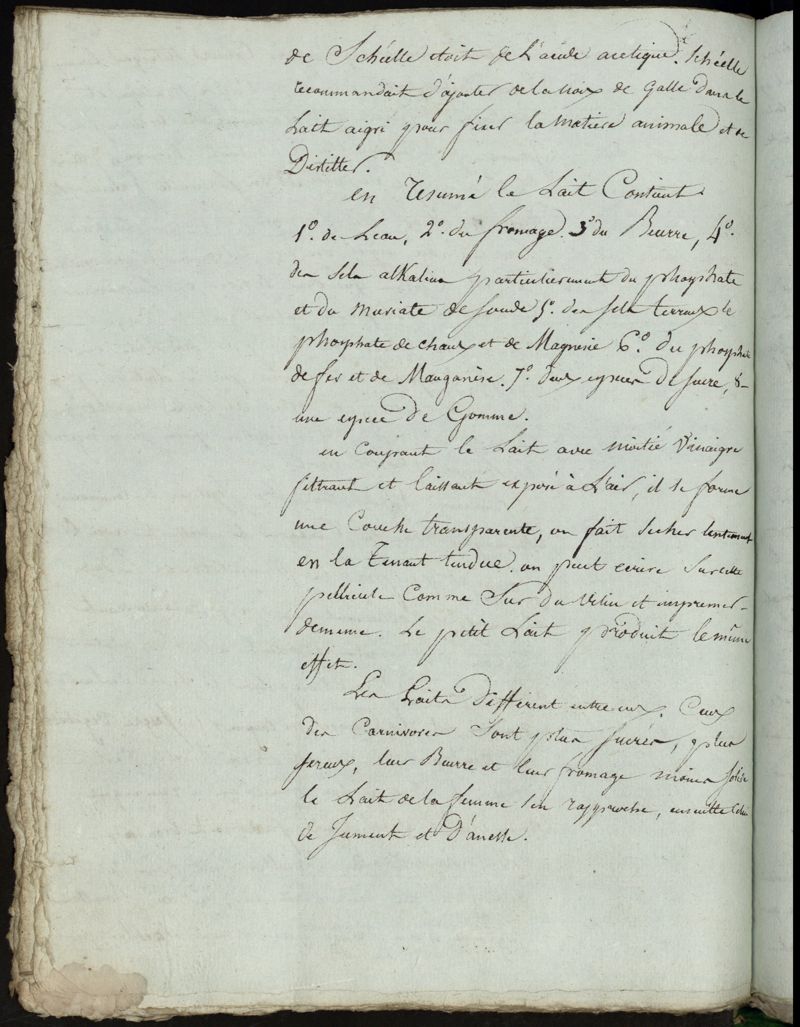 de Schéelle etoit de l'acide acetique. Schéelle
recommandait d'ajouter de la noix de galle dans le
Lait aigri pour fixer la matiere animale et de
Distiller.
en resumé le Lait Contient
1º. de Leau, 2º. du fromage. 3º du Beurre, 4º.
des sels alkalins particulierement du phosphate
et du muriate de soude 5º. des sels terreux le
phosphate de chaux et de Magnesie 6º. du phosphate
de fer et de Manganèse. 7º. deux especes de sucre, 8º
une espece de Gomme.
en coupant le Lait avec moitié Vinaigre
filtrant et laissant exposé à L'air, il se forme
une Couche transparente, on fait secher lentement
en la tenant tendue. on peut ecrire sur cette
pellicule Comme sur du velin et imprimer
de meme. Le petit Lait produit le même
effet.
Les Laits different entre eux. Ceux
des Carnivores sont plus sucrés, plus
sereux, leur Beurre et leur fromage moins solide
le Lait de la femme s'en rapproche, ensuite celui
de Jument et D'anesse.